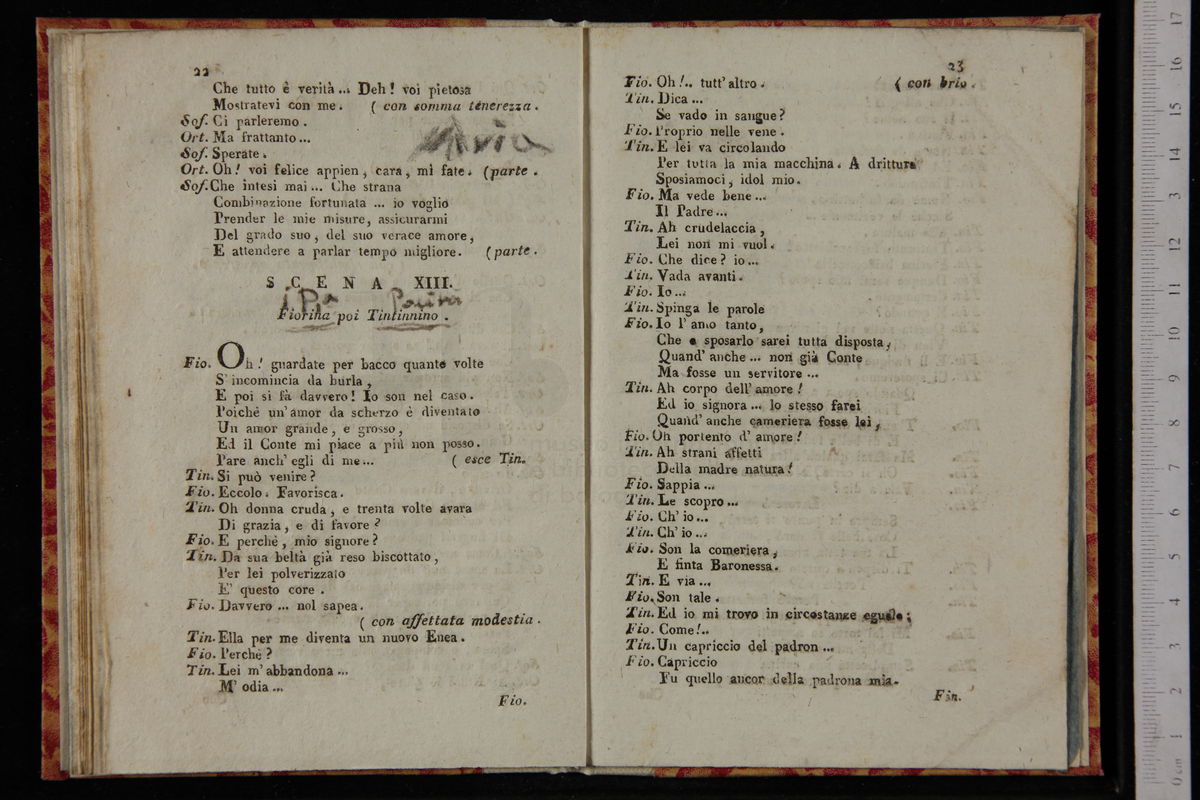 22
Che tutto è verità... Deh! voi pietosa
Mostratevi con me. ( con somma tenerezza.
Sof. Ci parleremo.
Ort. Ma frattanto...
Sof. Sperate.
Ort. Oh! voi felice appien, cara, mi fate. (parte.
Sof. Che intesi mai... Che strana
Combinazione fortunata ... io voglio
Prender le mie misure, assicurarmi
Del grado suo, del suo verace amore,
E attendere a parlar tempo migliore. (parte.
SCENA XIII.
Fiorina poi Tintinnino.
Fio. Oh! guardate per bacco quante volte
S' incomincia da burla,
E poi si fà davvero! Io son nel caso.
Poichè un' amor da scherzo è diventato
Un amor grande, e grosso,
Ed il Conte mi piace a più non posso.
Pare anch' egli di me... ( esce Tin.
Tin. Si può venire?
Fio. Eccolo. Favorisca.
Tin. Oh donna cruda, e trenta volte avara
Di grazia, e di favore?
Fio. E perchè, mio signore?
Tin. Da sua beltà già reso biscottato,
Per lei polverizzato
E' questo core.
Fio. Davvero ... nol sapea.
( con affettata modestia.
Tin. Ella per me diventa un nuovo Enea.
Fio. Perchè?
Tin. Lei m' abbandona ...
M' odia ...
Fio.
23
Fio. Oh!.. tutt' altro. ( con brio.
Tin. Dica ...
Se vado in sangue?
Fio. Proprio nelle vene.
Tin. E lei va circolando
Per tutta la mia macchina. A drittura
Sposiamoci, idol mio.
Fio. Ma vede bene...
Il Padre...
Tin. Ah crudelaccia,
Lei non mi vuol.
Fio. Che dice? io...
Tin. Vada avanti.
Fio. Io...
Tin. Spinga le parole
Fio. Io l' amo tanto,
Che a sposarlo sarei tutta disposta,
Quand' anche ... non già Conte
Ma fosse un servitore ...
Tin. Ah corpo dell' amore!
Ed io signora ... lo stesso farei
Quand' anche cameriera fosse lei,
Fio. Oh portento d' amore!
Tin. Ah strani affetti
Della madre natura!
Fio. Sappia ...
Tin. Le scopro ...
Fio. Ch' io ...
Tin. Ch' io ...
Fio. Son la comeriera,
E finta Baronessa.
Tin. E via ...
Fio. Son tale.
Tin. Ed io mi trovo in circostanze eguale;
Fio. Come!..
Tin. Un capriccio del padron ...
Fio. Capriccio
Fu quello ancor della padrona mia.
Fin.